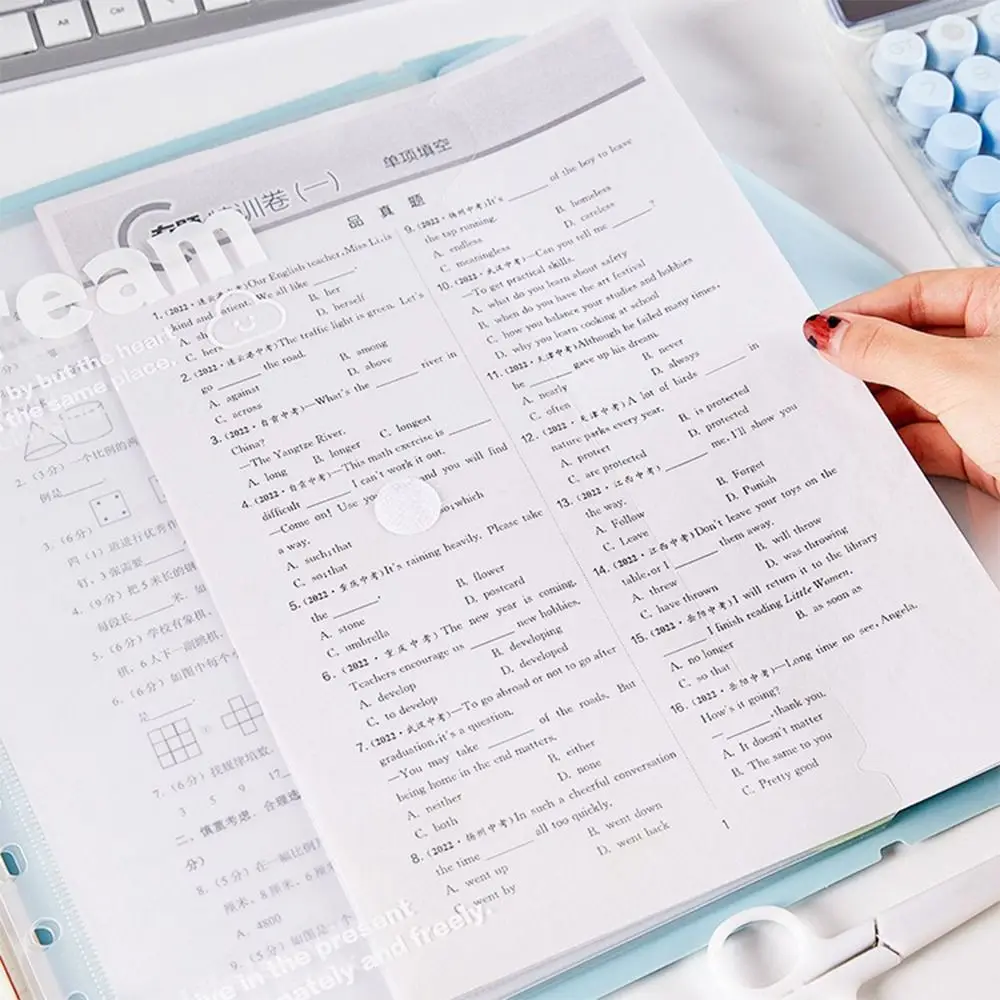 Alt
ream
by but the heart
the same place.
训卷(一)
单项填空
品 真 题
1.(2022·连云港中考)Our English teacher, Miss Li, is
kind and patient. We all like ______.
B. her
C. hers
D. herself
2.(2022·连云港中考)The traffic light is green. Let's
go ______ the road.
A. against
B. among
C. across
D. above
3.(2022·自贡中考)—What's the ______ river in
China?
—The Yangtze River.
A. long B. longer C. longest
4.(2022·自贡中考)—This math exercise is ______
difficult ______ I can't work it out.
—Come on! Use and you will find
a way.
A. such;that
which
C. so;that
5.(2022·重庆中考)It's raining heavily. Please take
the ______.
A. stone
B. flower
C. umbrella
D. postcard
6.(2022·重庆中考)The new year is coming.
Teachers encourage us ______ new hobbies.
A. develop
B. developing
C. to develop
D. developed
7.(2022·武汉中考)—To go abroad or not to go after
graduation, it's a question.
—You may take ______ of the roads. But
being home in the end matters.
A. neither
B. either
C. both
D. none
8.(2022·扬州中考)In such a cheerful conversation
the time ______ all too quickly.
A. went up
B. went down
C. went by
D. went back
9.(2022·扬州中考)It's ______ of the boy to leave
the tap running.
A. endless
B. homeless
C. meaningless
D. careless
10.(2022·武汉中考)—Can you tell me ______?
—To get practical skills.
A. what do you learn about safety
B. when do you have the art festival
C. how you balance your studies and hobbies
D. why you learn cooking at school
11.(2022·天津中考)Although he failed many times,
he ______ gave up his dream.
A. nearly
B. never
C. often
D. always
12.(2022·天津中考)A lot of birds ______ in
nature parks every year.
A. protect
B. is protected
C. are protected
D. protected
13.(2022·江西中考) ______ me, I'll show you
the way.
A. Follow
B. Forget
C. Leave
D. Punish
14.(2022·江西中考)Don't leave your toys on the
table, or I ______ them away.
A. threw
B. will throw
C. have thrown
D. was throwing
15.(2022·岳阳中考)I will return it to the library
______ I finish reading Little Women.
A. no longer
B. as soon as
C. so that
16.(2022·岳阳中考)—Long time no see, Angela.
How's it going?
— ______, thank you.
A. It doesn't matter
B. The same to you
C. Pretty good
1
2.(3分)一个比例的两
例是
3.(6分)
四(1)班进行优秀作
钉,3张需要
4.(9分)把5米长的钢
每段长____米,如
5.(6分)学校有象棋、
棋,6人下一副跳棋,
6.(6分)如图中每个小
是
7.(6分)找规律填数.
3 5 9 17
二、慎重考虑,合理选
分)
8.(5分)在一幅比例
厘米,8厘米,6厘
A. 4800
9.(5分)如图是一个
live in the present
and freely.